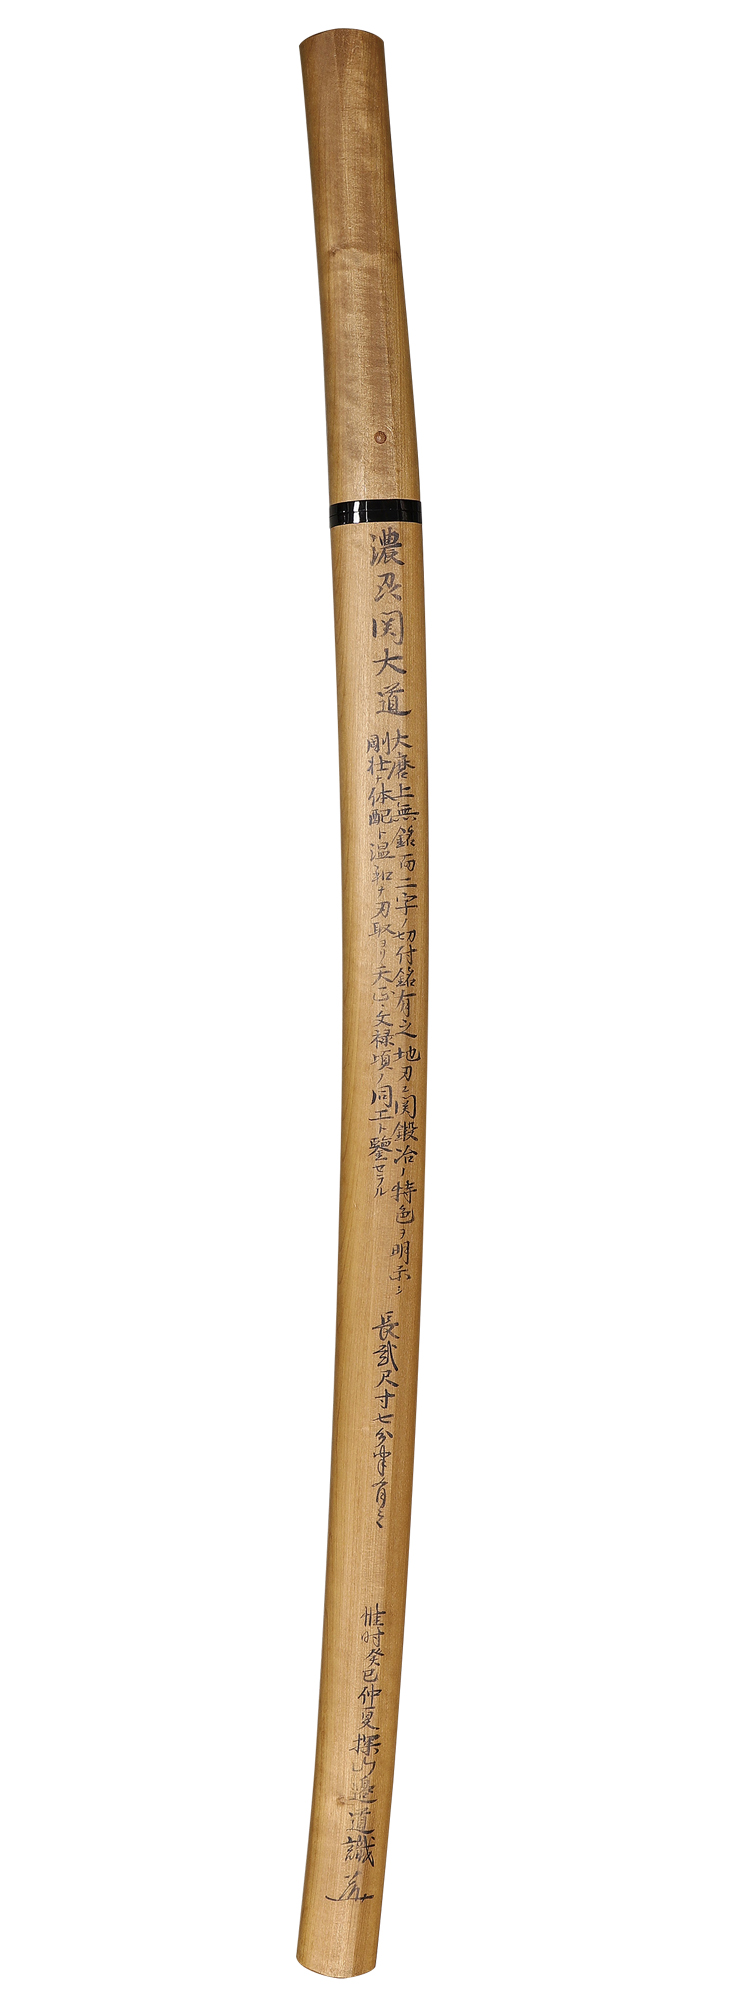 濃州関大道
大磨上無銘而二字ノ切付銘有之地刃ニ関鍛冶ノ特色ヲ明示シ
剛壮ナ体配ト温和ナ刃取ヨリ天正・文禄頃ノ同工ト鑒セラル
長貳尺寸七分半有之
惟时癸巳仲夏探山邉道識